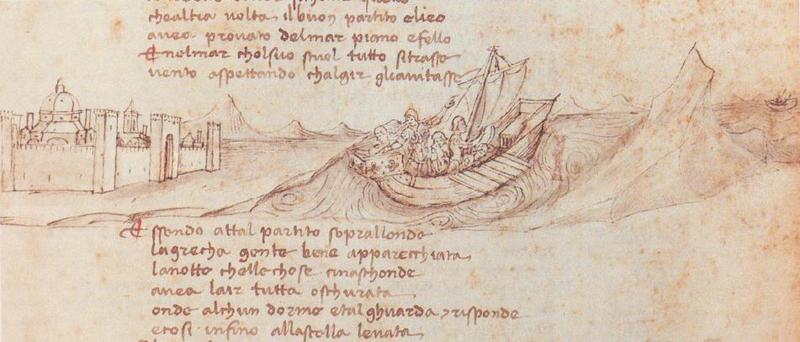 chealtra volta il buon partito elieo
avea provato delmar piano efello
Enelmar cholsuo stuol tutto sitrasse
vento aspettando chalgir gliaiutasse
Essendo attal partito soprallonda
lagrecha gente bene apparecchiata
lanotte chelle chose cinaschonde
avea lair tutta oschurata
onde alchun dorme etal ghuarda, risponde
ecosi infino allastella levata